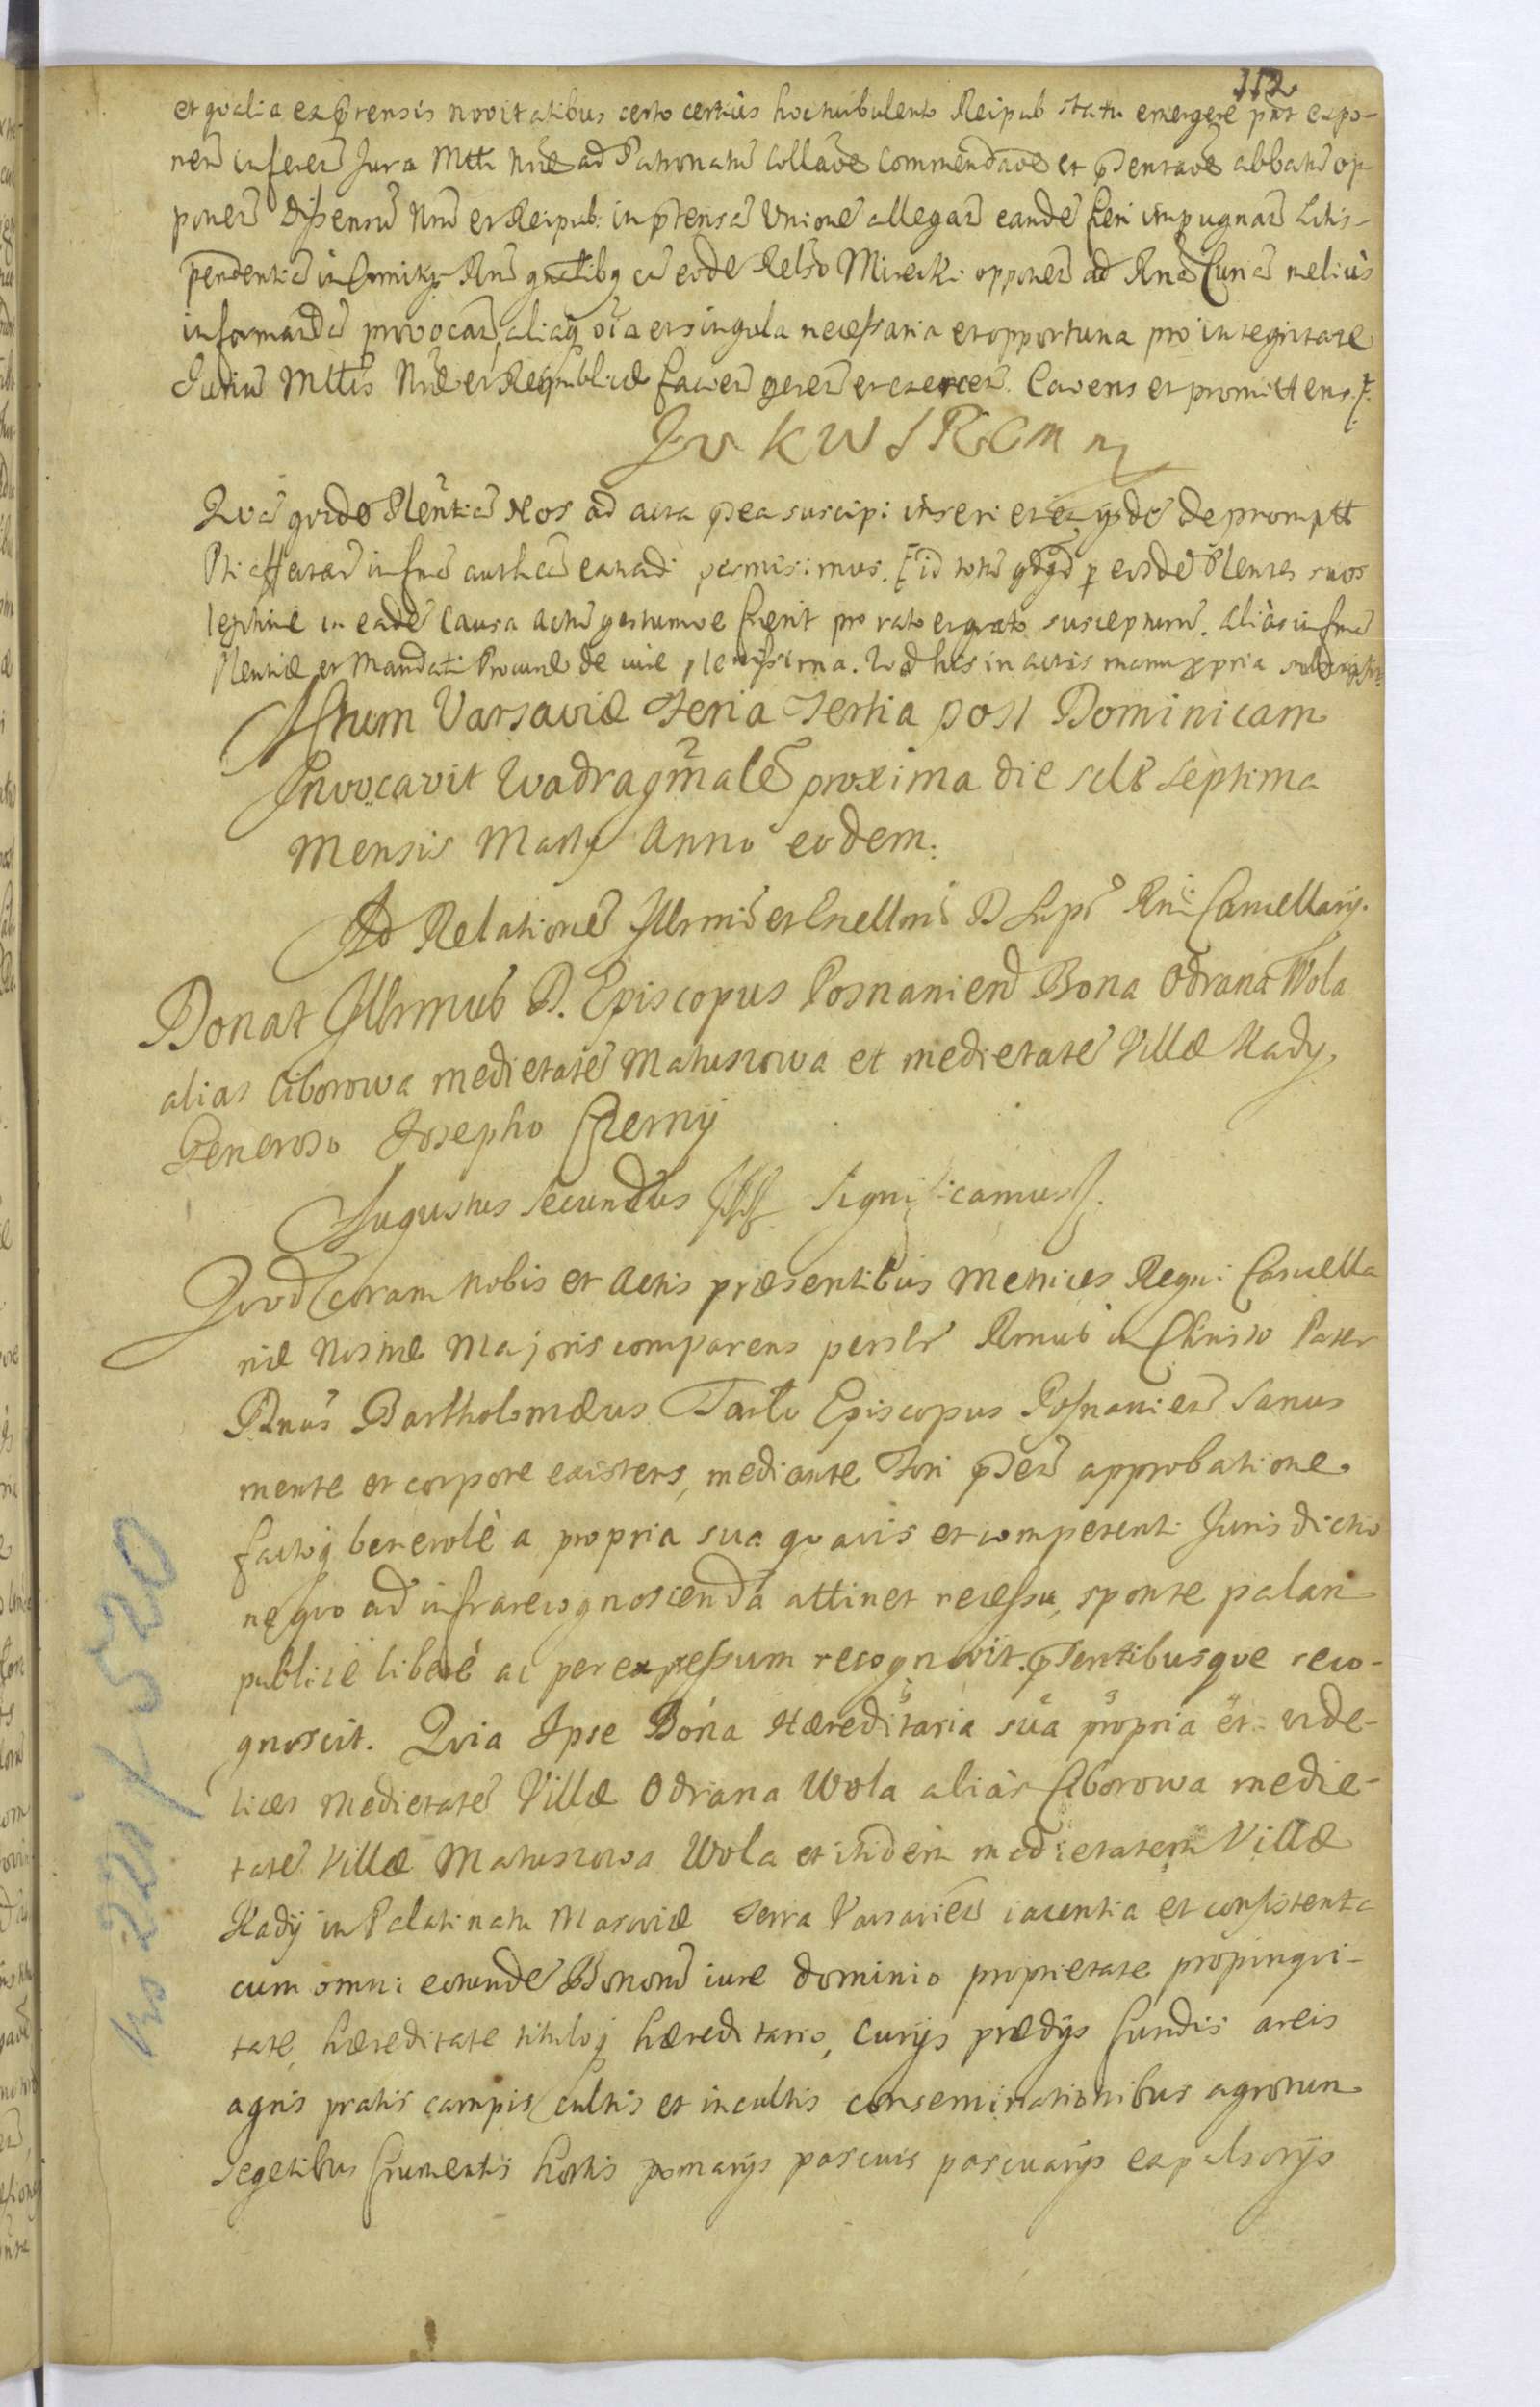 112
et qualia ex prensis novitatibus certo certius hoc turbulento Reipub statu emergere pnt expo-
nend inferend Jura Mttis Nræ ad Patronatu Collaoe Commendaoe et pntaoe abbatu op-
ponend Dissensu Nru et Reipub: in ptensa Unione allegand eande fieri impugnand Litis-
pendentia in ... Rni ... cu eode Relso Mirecki opponend ad Rna Curia melius
informanda provocand, aliaq oia et singula necessaria et opportuna pro integritate
Juriu Mttis Nræ et Reipublicæ faciend gerend et exercend. Cavens et promittens.
JvKWSRCMm
Qua quide Plentia Nos ad acta pntia suscipi inseri et ex ysde depromptt
Pti affectand in fma authca extradi permisimus. Et id totu qdqd p eosde Plentes suos
legitime in eade Causa actu gestumve fuerit pro rato et grato suscepturu. Aliàs in fma
Plentiæ et Mandati Procurae de iure plenissima. Quod his in actis manu ppria subscripsit
Actum Varsaviæ Feria Tertia post Dominicam
Invocavit Quadragmale proxima die sclt septima
Mensis Martij Anno eodem.
Ad Relatione Illrmi et Excellmi D Supr Rni Cancellarij.
Donat Illrmus D. Episcopus Posnaniend Bona Odrana Wola
alias Ciborowa medietate Matuszowa et medietate Villæ Kady,
Generoso Josepho Czerny
Augustus Secundus Significamus
Quod coram nobis et Actis præsentibus Metrices Regni Cancella
riæ Nostræ Majoris comparens perslr Rmus in Christo Pater
Dnus Bartholomæus Tarlo Episcopus Posnaniend Sanus
mente et corpore existens, mediante Fori pntis approbatione
factoq benevolè a propria sua quavis et competenti Jurisdictio
ne quo ad infrarecognoscenda attinet recessu, sponte palam
publice liberè ac per expressum recognovit. pntibusque reco-
gnoscit. Quia Ipse Bona Hæreditaria sua propria et vide-
licet Medietate Villæ Odrana Wola aliàs Ciborowa medie-
tate Villæ Matuszowa Wola et itidem medietatem Villæ
Kady in Palatinatu Masoviæ Terra Varsaviend iacentia et consistentia
cum omni eorunde Bonoru iure dominio proprietate propinqui-
tate, hæreditate tituloq hæreditario, Curijs prædijs fundis areis
agris pratis campis cultis et incultis conseminationibus agrorum
segetibus frumentis hortis pomarijs pascuis pascuarijs expulsorijs
No 221 / 520